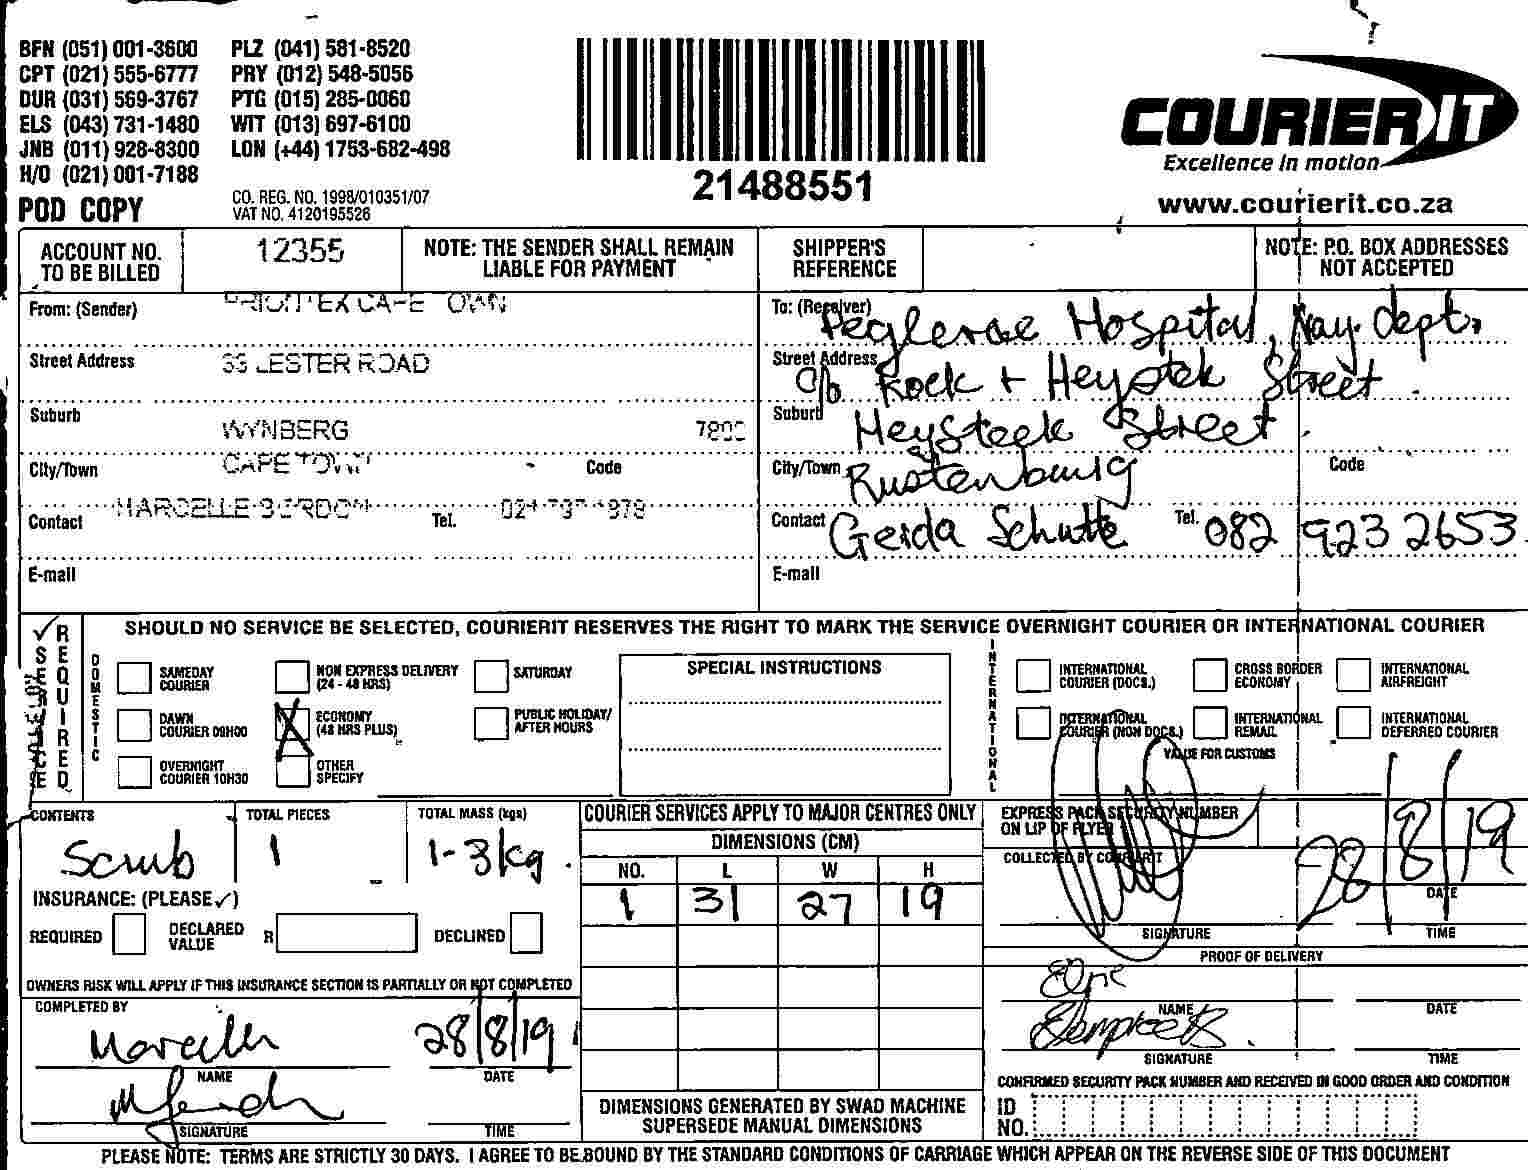 BFN (051) 001-3600 PLZ (041) 581-8520
CPT (021) 555-6777 PRY (012) 548-5056
DUR (031) 569-3767 PTG (015) 285-0060
ELS (043) 731-1480 WIT (013) 697-6100
JNB (011) 928-8300 LON (+44) 1753-682-498
H/O (021) 001-7188
POD COPY
CO. REG. NO. 1998/010351/07
VAT NO. 4120195526
21488551
COURIER IT
Excellence in motion
www.courierit.co.za
ACCOUNT NO. TO BE BILLED
12355
NOTE: THE SENDER SHALL REMAIN LIABLE FOR PAYMENT
SHIPPER'S REFERENCE
NOTE: P.O. BOX ADDRESSES NOT ACCEPTED
From: (Sender) CAPE TOWN
Street Address LESTER ROAD
Suburb WYNBERG
City/Town CAPE TOWN Code
Contact MARCELLE Tel.
E-mail
To: (Receiver) Hospital, dept.
Street Address c/o Rock + Heystek Street
Suburb Heysteek Street.
City/Town Rustenburg Code
Contact Gerda Schutte Tel. 082 923 2653
E-mail
REQUIRED
SHOULD NO SERVICE BE SELECTED, COURIERIT RESERVES THE RIGHT TO MARK THE SERVICE OVERNIGHT COURIER OR INTERNATIONAL COURIER
DOMESTIC
SAMEDAY COURIER
NON EXPRESS DELIVERY (24 - 48 HRS)
SATURDAY
DAWN COURIER 09H00
ECONOMY (48 HRS PLUS)
PUBLIC HOLIDAY/ AFTER HOURS
OVERNIGHT COURIER 10H30
OTHER SPECIFY
SPECIAL INSTRUCTIONS
INTERNATIONAL
INTERNATIONAL COURIER (DOCS.)
CROSS BORDER ECONOMY
INTERNATIONAL AIRFREIGHT
INTERNATIONAL COURIER (NON DOCS.)
INTERNATIONAL REMAIL
INTERNATIONAL DEFERRED COURIER
VALUE FOR CUSTOMS
CONTENTS
Scrub
TOTAL PIECES
1
TOTAL MASS (kgs)
1-3kg.
INSURANCE: (PLEASE ✓)
REQUIRED DECLARED VALUE R DECLINED
OWNERS RISK WILL APPLY IF THIS INSURANCE SECTION IS PARTIALLY OR NOT COMPLETED
COMPLETED BY
28/8/19
NAME DATE
SIGNATURE TIME
COURIER SERVICES APPLY TO MAJOR CENTRES ONLY
DIMENSIONS (CM)
NO. L W H
1 31 27 19
DIMENSIONS GENERATED BY SWAD MACHINE SUPERSEDE MANUAL DIMENSIONS
EXPRESS PACK SECURITY NUMBER ON LIP OF FLYER
COLLECTED BY COURIERIT
28/8/19
DATE
SIGNATURE TIME
PROOF OF DELIVERY
NAME DATE
SIGNATURE TIME
CONFIRMED SECURITY PACK NUMBER AND RECEIVED IN GOOD ORDER AND CONDITION
ID NO.
PLEASE NOTE: TERMS ARE STRICTLY 30 DAYS. I AGREE TO BE BOUND BY THE STANDARD CONDITIONS OF CARRIAGE WHICH APPEAR ON THE REVERSE SIDE OF THIS DOCUMENT